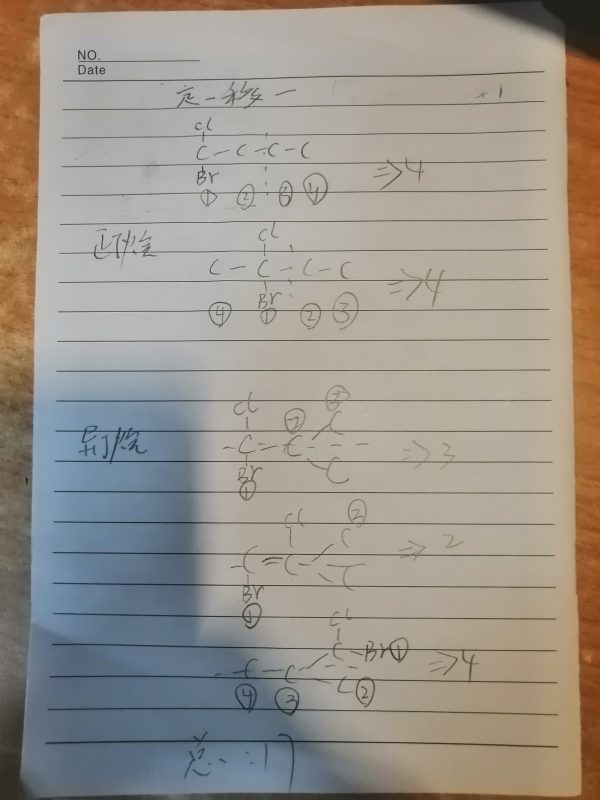 NO.
Date
定一移一
+1
Cl
C-C-C-C
Br
① ② ③ ④
⇒4
正丁烷
Cl
C-C-C-C
Br
④ ① ② ③
⇒4
异丁烷
③
Cl ② C
-C-C---
Br C
①
⇒3
Cl ②
C
-C=C-
Br C
①
⇒2
Cl
C-Br①
-C-C--
④ ③ C②
⇒4
总:17